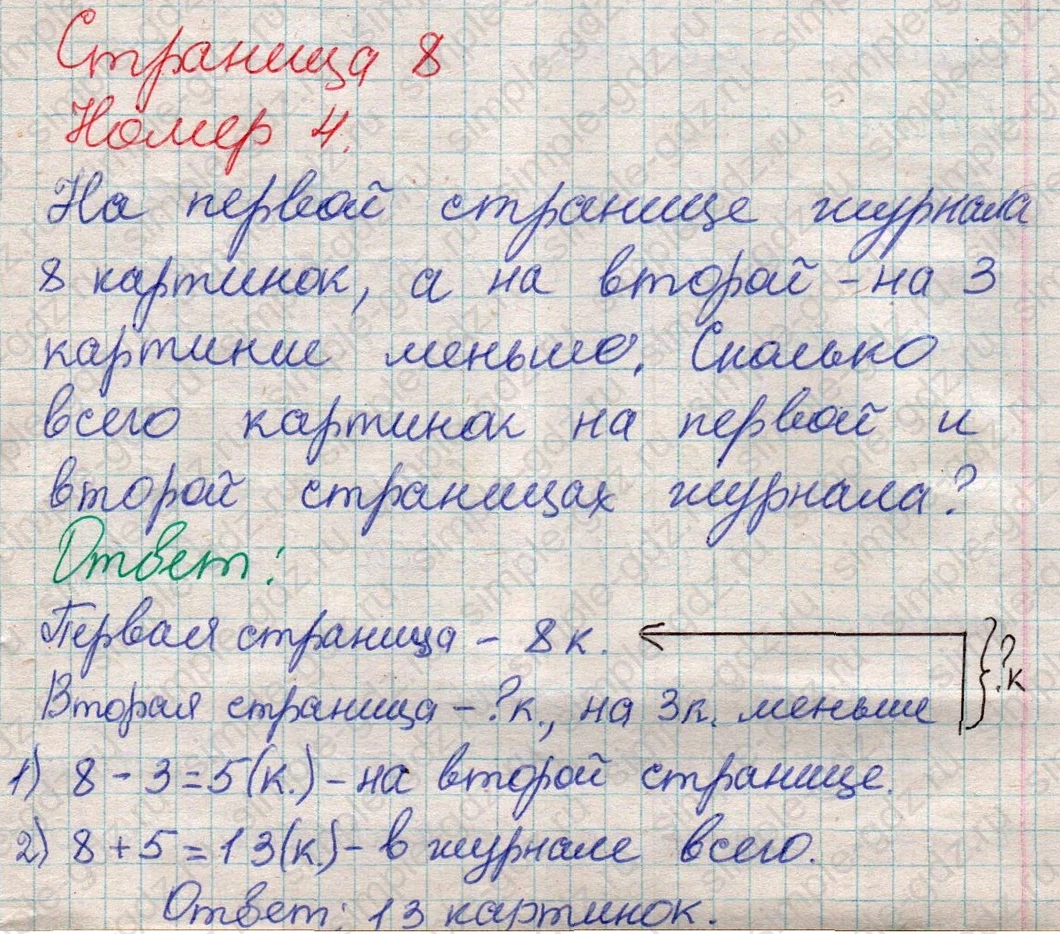 Страница 8
Номер 4.
На первой странице журнала
8 картинок, а на второй - на 3
картинки меньше. Сколько
всего картинок на первой и
второй страницах журнала?
Ответ:
Первая страница - 8 к.
Вторая страница - ? к., на 3 к. меньше
? к
1) 8 - 3 = 5 (к.) - на второй странице.
2) 8 + 5 = 13 (к.) - в журнале всего.
Ответ: 13 картинок.
simple-gdz.ru